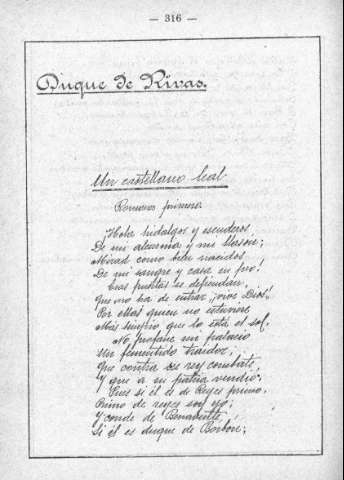 — 316 —
Duque de Rivas.
Un castellano leal
Romance primero
Hola hidalgos y escuderos
De mi alcurnia y mi blason;
Mirad como bien nacidos
De mi sangre y casa en pro!
Esas puertas se defiendan,
Que no ha de entrar ¡vive Dios!
Por ellas quien no estuviere
Mas limpio que lo está el sol.
No profane mi palacio
Un fementido traidor,
Que contra su rey combate,
Y que a su patria vendió.
Pues si él es de Reyes primo,
Primo de reyes soy yo;
Y conde de Benavente,
Si él es duque de Borbon;